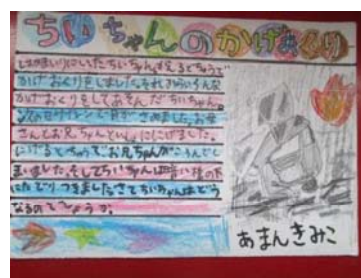 ちいちゃんのかげおくり
はかまいりにいったちいちゃんがかえるとちゅうで
かげおくりをしました。それからいろんな
かげおくりをしてあそんだちいちゃん。
夏のサイレンで目がさめました。お母
さんとお兄ちゃんといっしょににげました。
にげるとちゅうでお兄ちゃんがころんでし
まいました。そしてちいちゃんは暗い橋の下
にたどりつきましたさてちいちゃんはどう
なるのでしょうか。
あまんきみこ